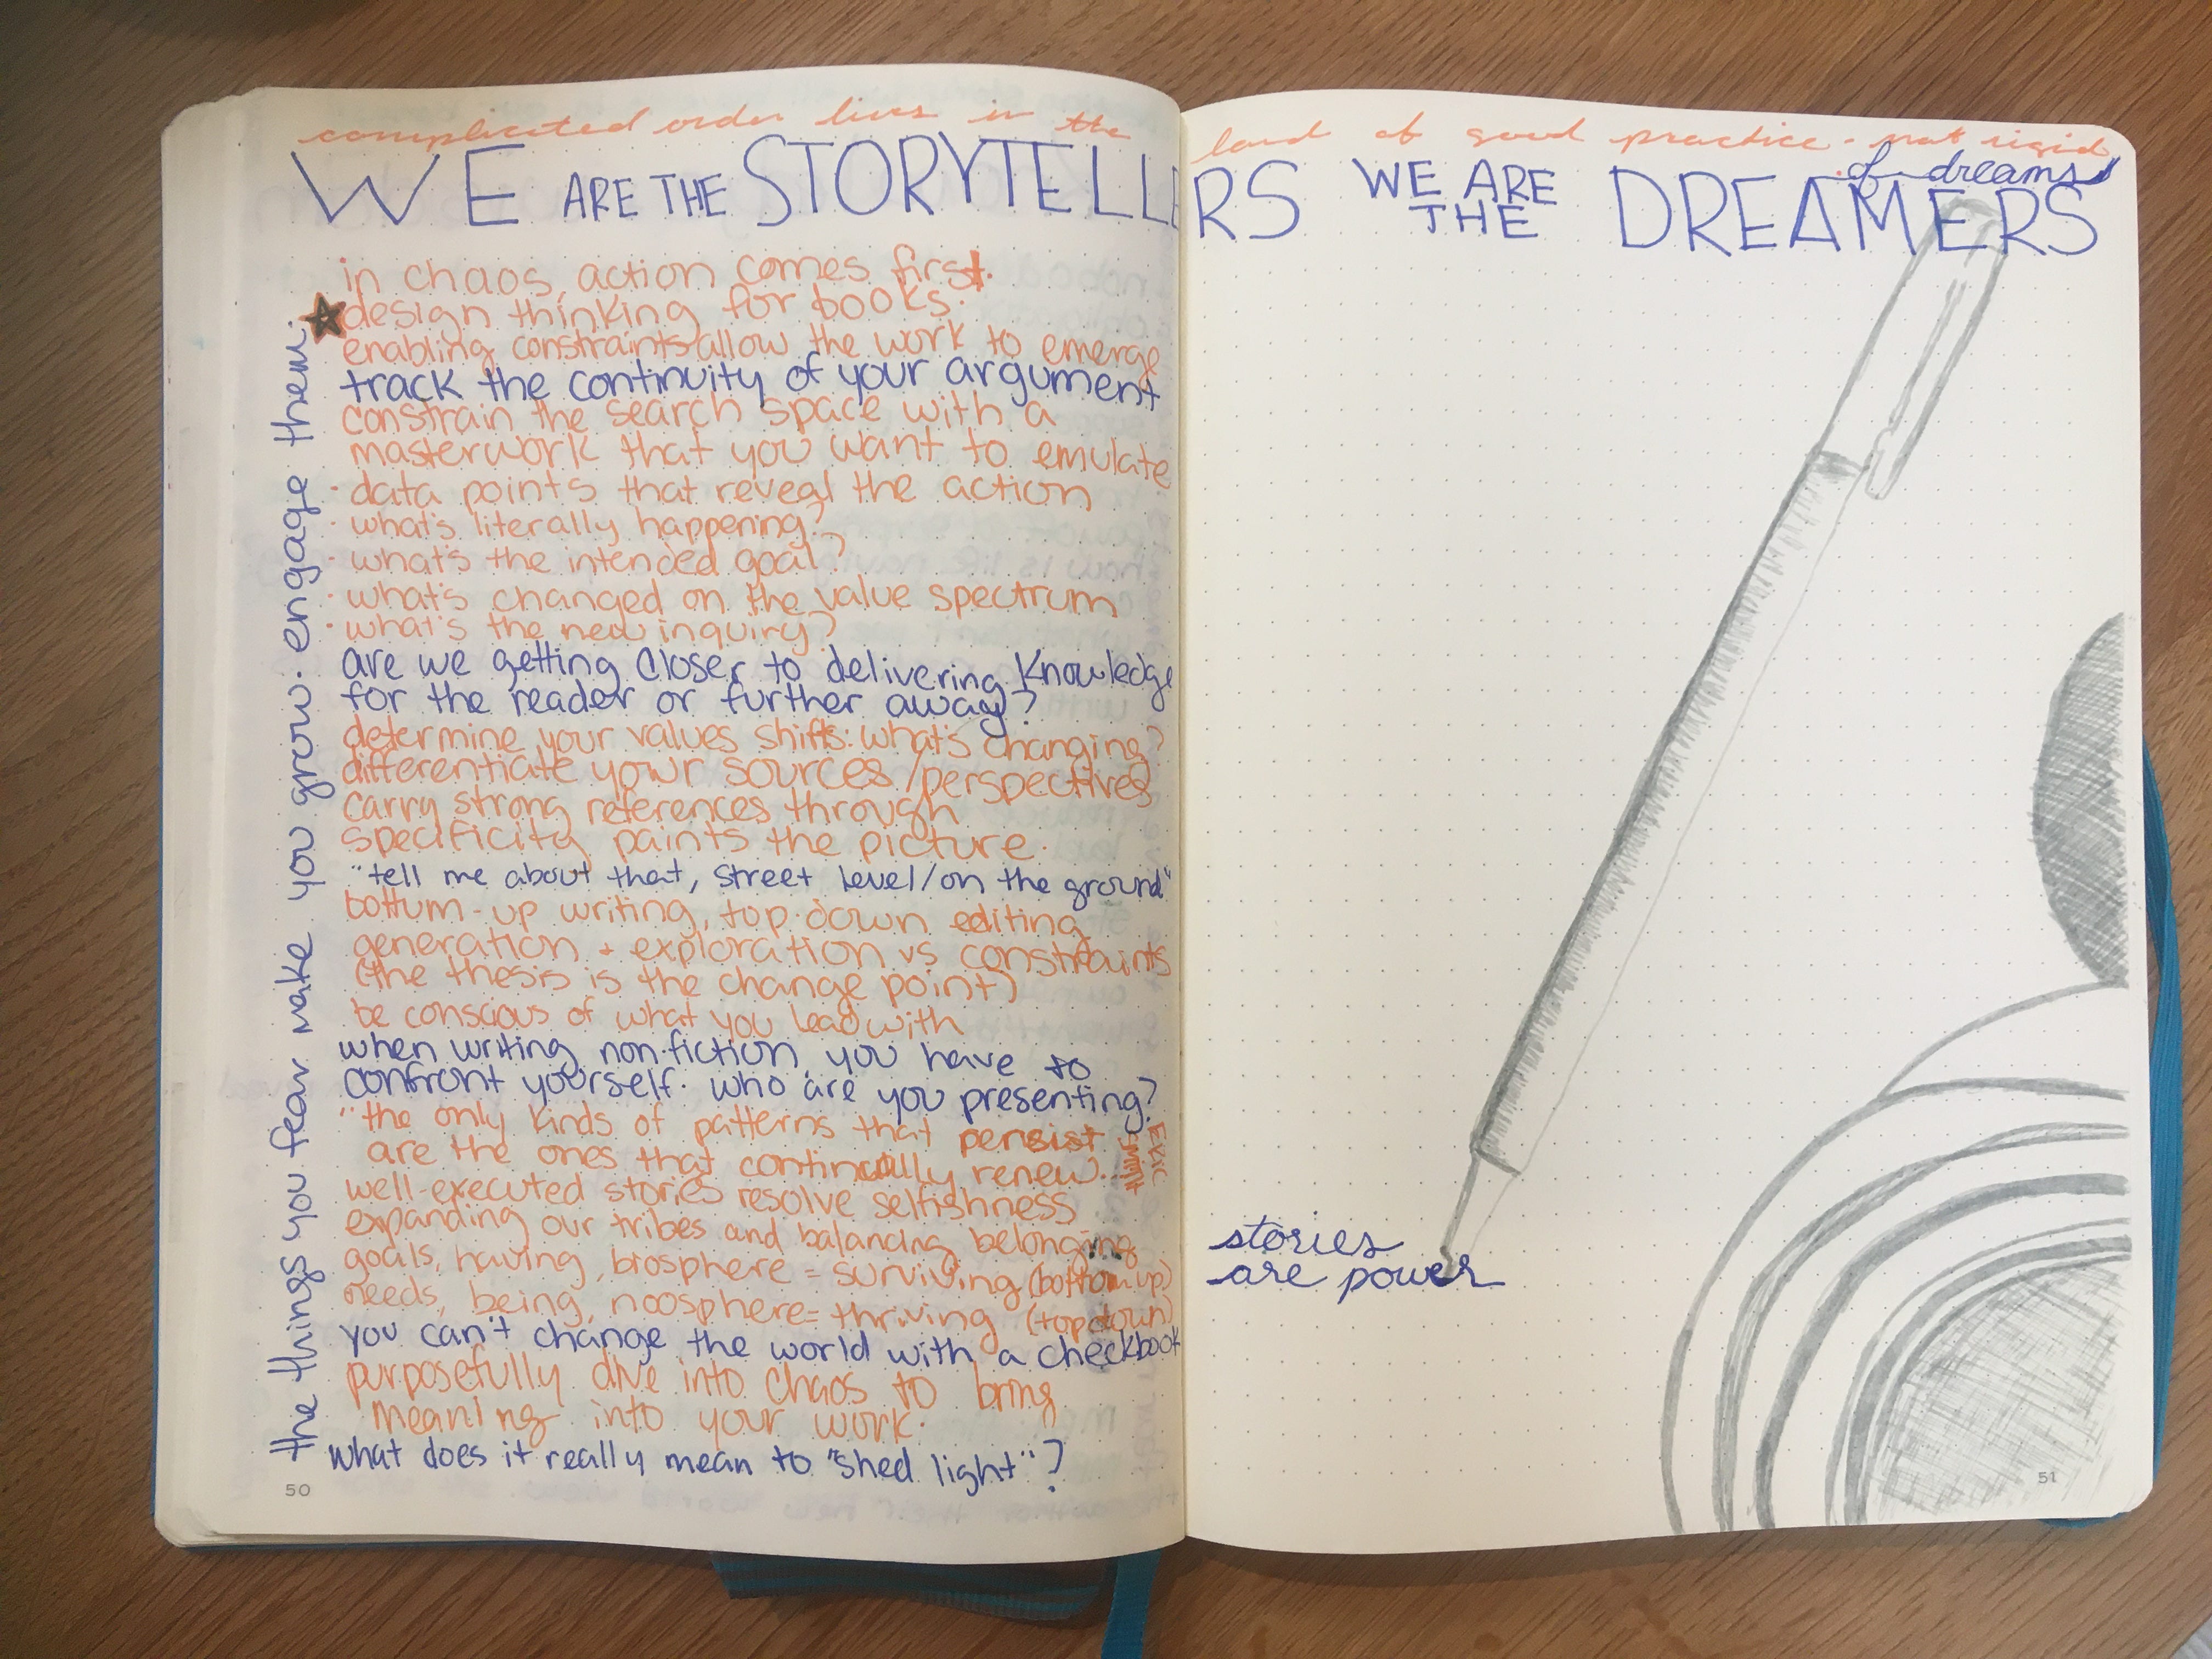 complicated order lives in the land of good practice - not rigid
WE ARE THE STORYTELLERS WE ARE THE DREAMERS
of dreams
in chaos, action comes first.
design thinking for books.
enabling constraints allow the work to emerge
track the continuity of your argument
constrain the search space with a
masterwork that you want to emulate
· data points that reveal the action
· what's literally happening?
· what's the intended goal?
· what's changed on the value spectrum
· what's the new inquiry?
are we getting closer to delivering knowledge
for the reader or further away?
determine your values shifts: what's changing?
differentiate your sources/perspectives
carry strong references through
specificity paints the picture.
"tell me about that, street level/on the ground"
bottum-up writing, top-down editing
generation + exploration vs constraints
(the thesis is the change point)
be conscious of what you lead with
when writing non-fiction, you have to
confront yourself. who are you presenting?
"the only kinds of patterns that persist
are the ones that continually renew..."
Eric Smith
well-executed stories resolve selfishness
expanding our tribes and balancing belonging
goals, having, biosphere = surviving (bottom up)
needs, being, noosphere = thriving (top down)
you can't change the world with a checkbook
purposefully dive into chaos to bring
meaning into your work.
what does it really mean to "shed light"?
the things you fear make you grow. engage them.
50
stories
are power
51